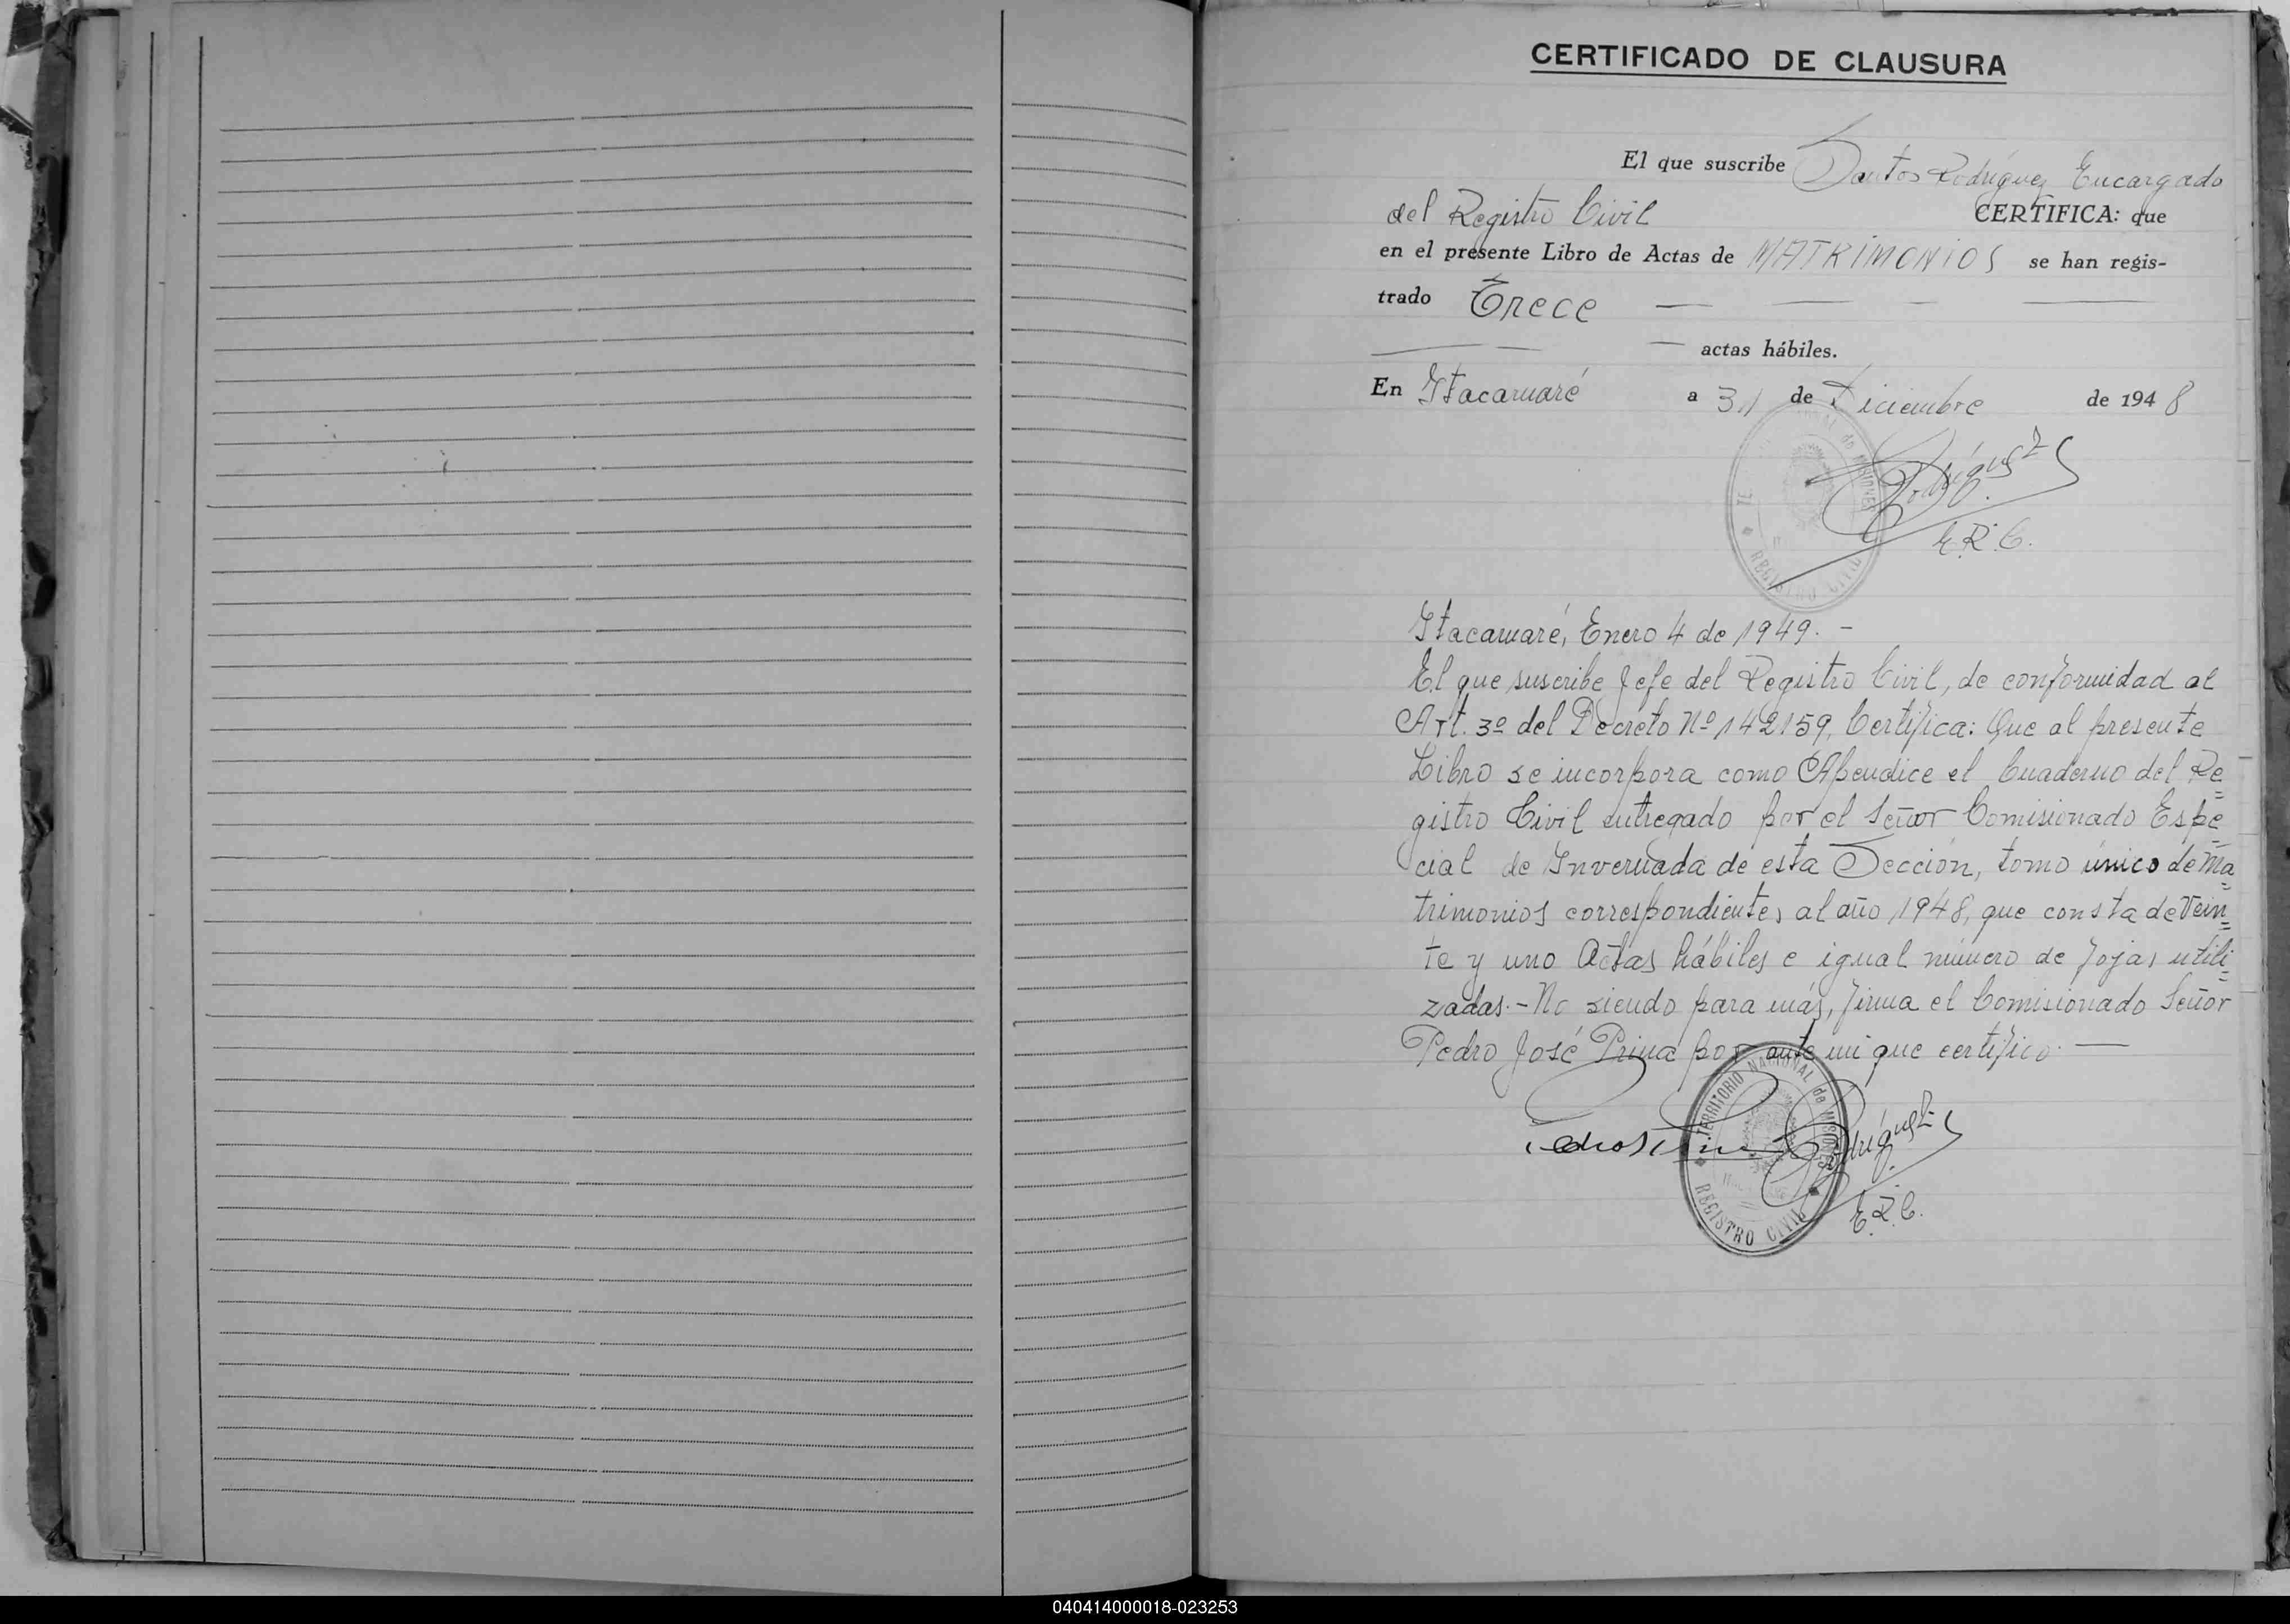 CERTIFICADO DE CLAUSURA
El que suscribe Santos Rodríguez Encargado
del Registro Civil CERTIFICA: que
en el presente Libro de Actas de MATRIMONIOS se han regis-
trado Trece
actas hábiles.
En Itacaruaré a 31 de Diciembre de 1948
Rodríguez
E.R.C.
Itacaruaré, Enero 4 de 1949. -
El que suscribe Jefe del Registro Civil, de conformidad al
Art. 3º del Decreto Nº 142159, Certifica: Que al presente
Libro se incorpora como Apendice el Cuaderno del Re=
gistro Civil entregado por el Señor Comisionado Espe=
cial de Invernada de esta Sección, tomo único de Ma=
trimonios correspondientes al año 1948, que consta de Vein=
te y uno Actas hábiles e igual número de fojas utili=
zadas. - No siendo para más, firma el Comisionado Señor
Pedro José Prina por ante mi que certifico. —
TERRITORIO NACIONAL de MISIONES
REGISTRO CIVIL
Rodríguez
E.R.C.
040414000018-023253